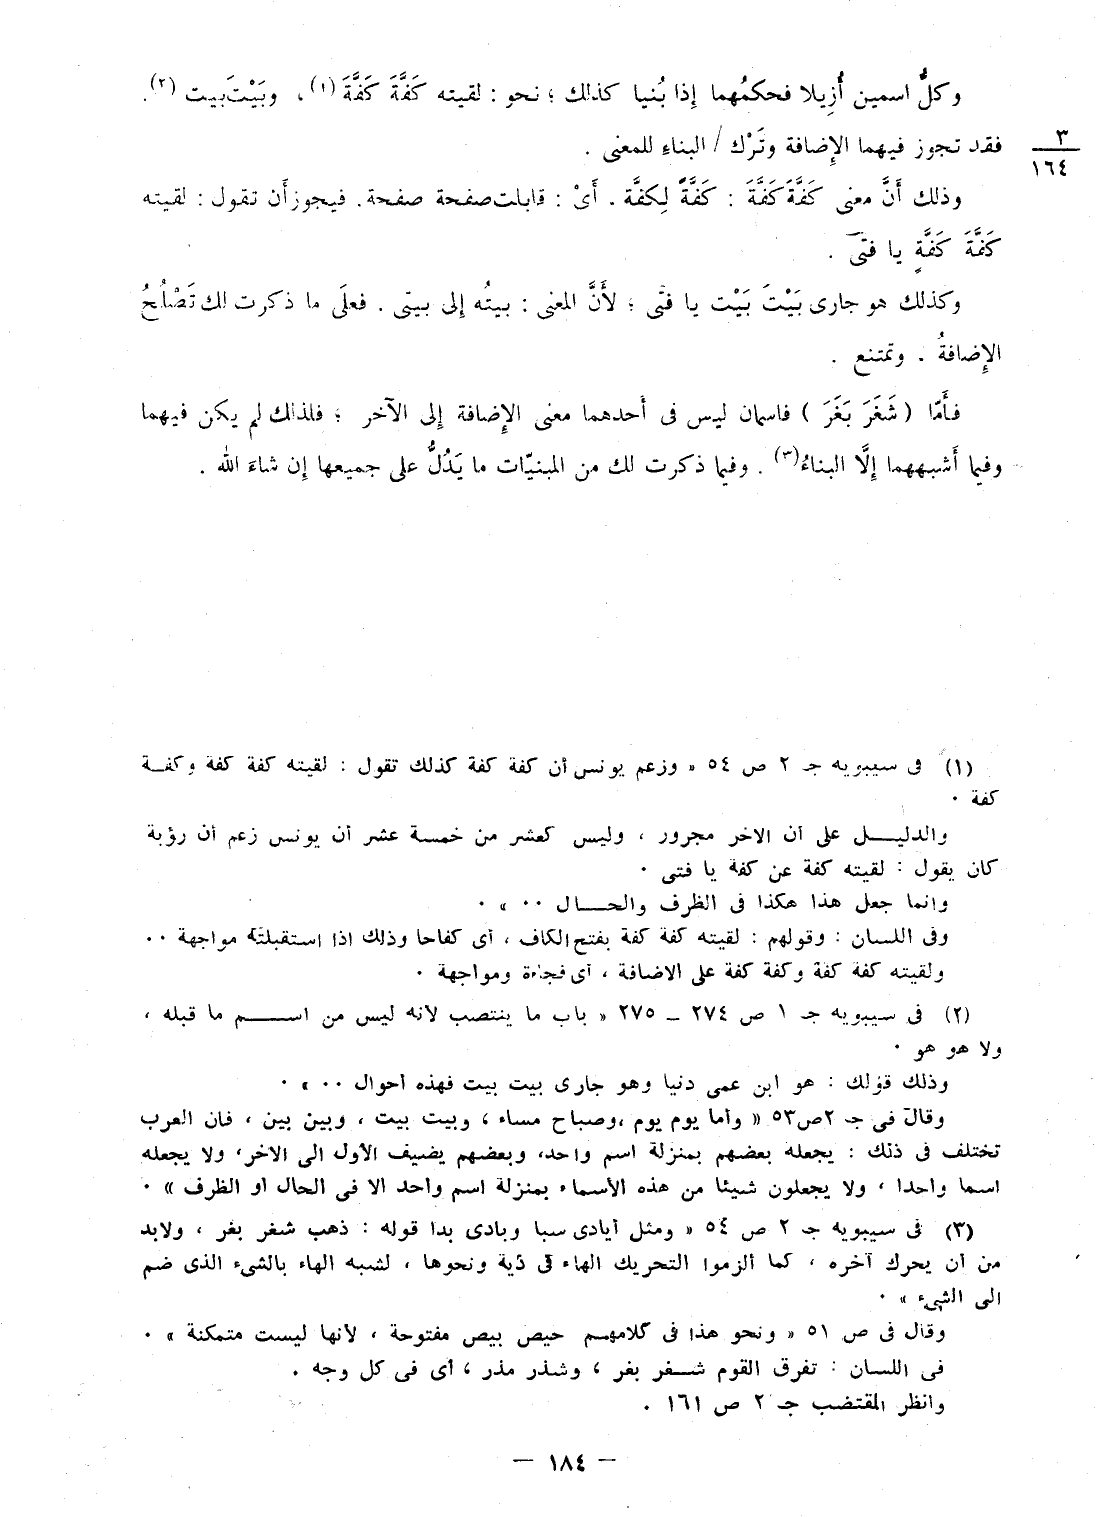 وكلُّ اسمين أُزيلا فحكمُهما إِذا بُنيا كذلك ؛ نحو : لقيته كَفَّةَ كَفَّةَ (١) ، وبَيْتَ بيت (٢) .
٣
١٦٤
فقد تجوز فيهما الإِضافة وتَرْك / البناءِ للمعنى .
وذلك أَنَّ معنى كَفَّةَ كَفَّةَ : كَفَّةً لِكفَّة . أَىْ : قابلت صفحة صفحة . فيجوز أَن تقول : لقيته
كَفَّةَ كَفَّةٍ يا فتى .
وكذلك هو جارى بَيْتَ بَيْت يا فتى ؛ لأَنَّ المعنى : بيتُه إلى بيتى . فعلَى ما ذكرت لك تَصْلُحُ
الإِضافةُ . وتمتنع .
فأَمّا ( شَغَرَ بَغَرَ ) فاسمان ليس فى أَحدهما معنى الإِضافة إِلى الآخر ؛ فلذلك لم يكن فيهما
وفيما أَشبههما إِلَّا البناءُ (٣) . وفيما ذكرت لك من المبنيّات ما يَدُلُّ على جميعها إِن شاءَ الله .
(١) فى سيبويه جـ ٢ ص ٥٤ « وزعم يونس أن كفة كفة كذلك تقول : لقيته كفة كفة وكفـة
كفة .
والدليـــل على أن الآخر مجرور ، وليس كعشر من خمسة عشر أن يونس زعم أن رؤبة
كان يقول : لقيته كفة عن كفة يا فتى .
وانما جعل هذا هكذا فى الظرف والحـــال .. » .
وفى اللسان : وقولهم : لقيته كفة كفة بفتح الكاف ، أى كفاحا وذلك اذا استقبلته مواجهة ..
ولقيته كفة كفة وكفة كفة على الاضافة ، أى فجاءة ومواجهة .
(٢) فى سيبويه جـ ١ ص ٢٧٤ ـ ٢٧٥ « باب ما ينتصب لأنه ليس من اســـم ما قبله ،
ولا هو هو .
وذلك قولك : هو ابن عمى دنيا وهو جارى بيت بيت فهذه أحوال .. » .
وقال فى جـ ٢ ص ٥٣ « وأما يوم يوم ، وصباح مساء ، وبيت بيت ، وبين بين ، فان العرب
تختلف فى ذلك : يجعله بعضهم بمنزلة اسم واحد، وبعضهم يضيف الأول الى الآخر، ولا يجعله
اسما واحدا ، ولا يجعلون شيئا من هذه الأسماء بمنزلة اسم واحد الا فى الحال او الظرف » .
(٣) فى سيبويه جـ ٢ ص ٥٤ « ومثل أيادى سبا وبادى بدا قوله : ذهب شغر بغر ، ولابد
من أن يحرك آخره ، كما ألزموا التحريك الهاء فى ذية ونحوها ، لشبه الهاء بالشىء الذى ضم
الى الشىء » .
وقال فى ص ٥١ « ونحو هذا فى كلامهم حيص بيص مفتوحة ، لأنها ليست متمكنة » .
فى اللسان : تفرق القوم شـغر بغر ، وشذر مذر ، أى فى كل وجه .
وانظر المقتضب جـ ٢ ص ١٦١ .
— ١٨٤ —